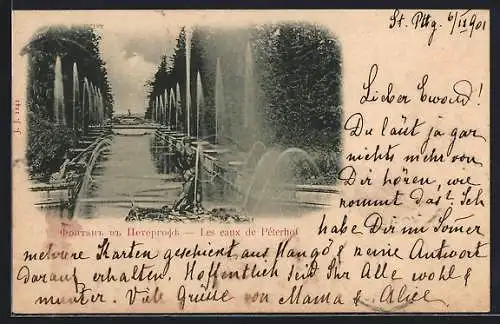 St. Pttg. 6/II 901
J. J. 1242
Lieber Ewould!
Du läut ja gar
nichts mehr von
Dir hören, wie
kommt das? Ich
habe Dir im Somer
mehrere Karten geschickt aus Hangö & keine Antwort
darauf erhalten. Hoffentlich seid Ihr Alle wohl &
munter. Viele Grüsse von Mama & Alice.
Фонтанъ въ Петергофѣ — Les eaux de Péterhof